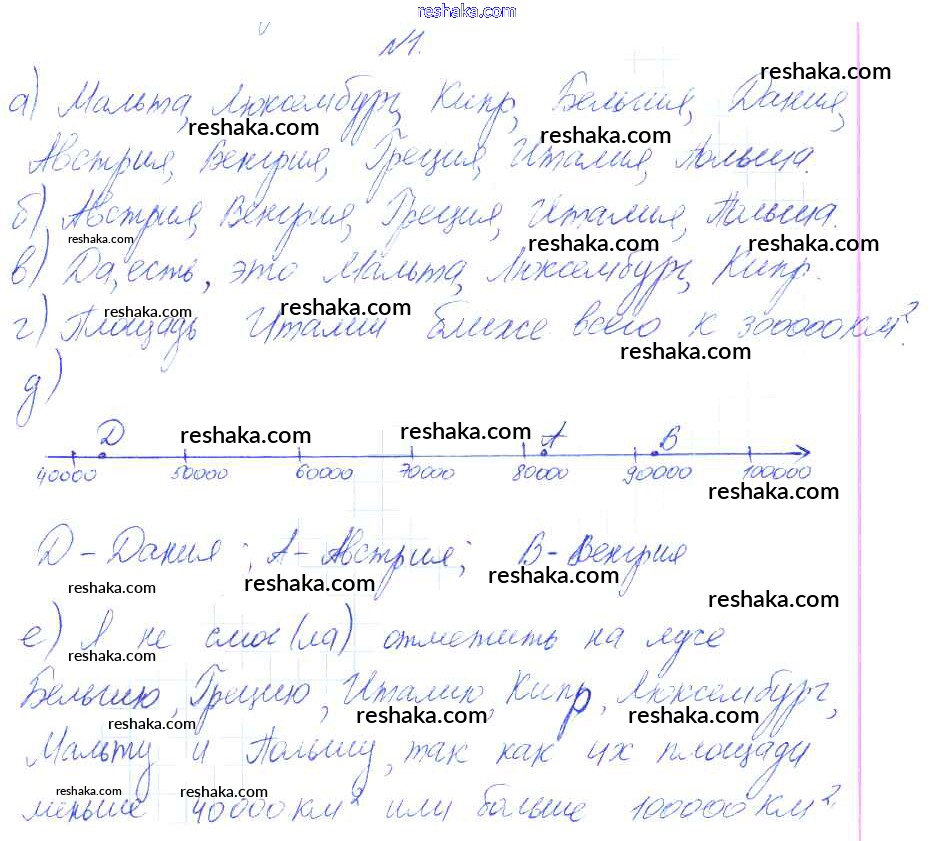 reshaka.com
№1.
reshaka.com
а) Мальта, Люксембург, Кипр, Бельгия, Дания,
reshaka.com reshaka.com
Австрия, Венгрия, Греция, Италия, Польша.
б) Австрия, Венгрия, Греция, Италия, Польша.
reshaka.com reshaka.com reshaka.com
в) Да, есть, это Мальта, Люксембург, Кипр.
reshaka.com reshaka.com
г) Площадь Италии ближе всего к 300000 км².
reshaka.com
д)
Д reshaka.com reshaka.com А В
40000 50000 60000 70000 80000 90000 100000
reshaka.com
Д - Дания; А - Австрия; В - Венгрия
reshaka.com reshaka.com reshaka.com
reshaka.com
е) Я не смог(ла) отметить на луче
reshaka.com
Бельгию, Грецию, Италию, Кипр, Люксембург,
reshaka.com reshaka.com reshaka.com
Мальту и Польшу, так как их площади
reshaka.com reshaka.com
меньше 40000 км² или больше 100000 км².